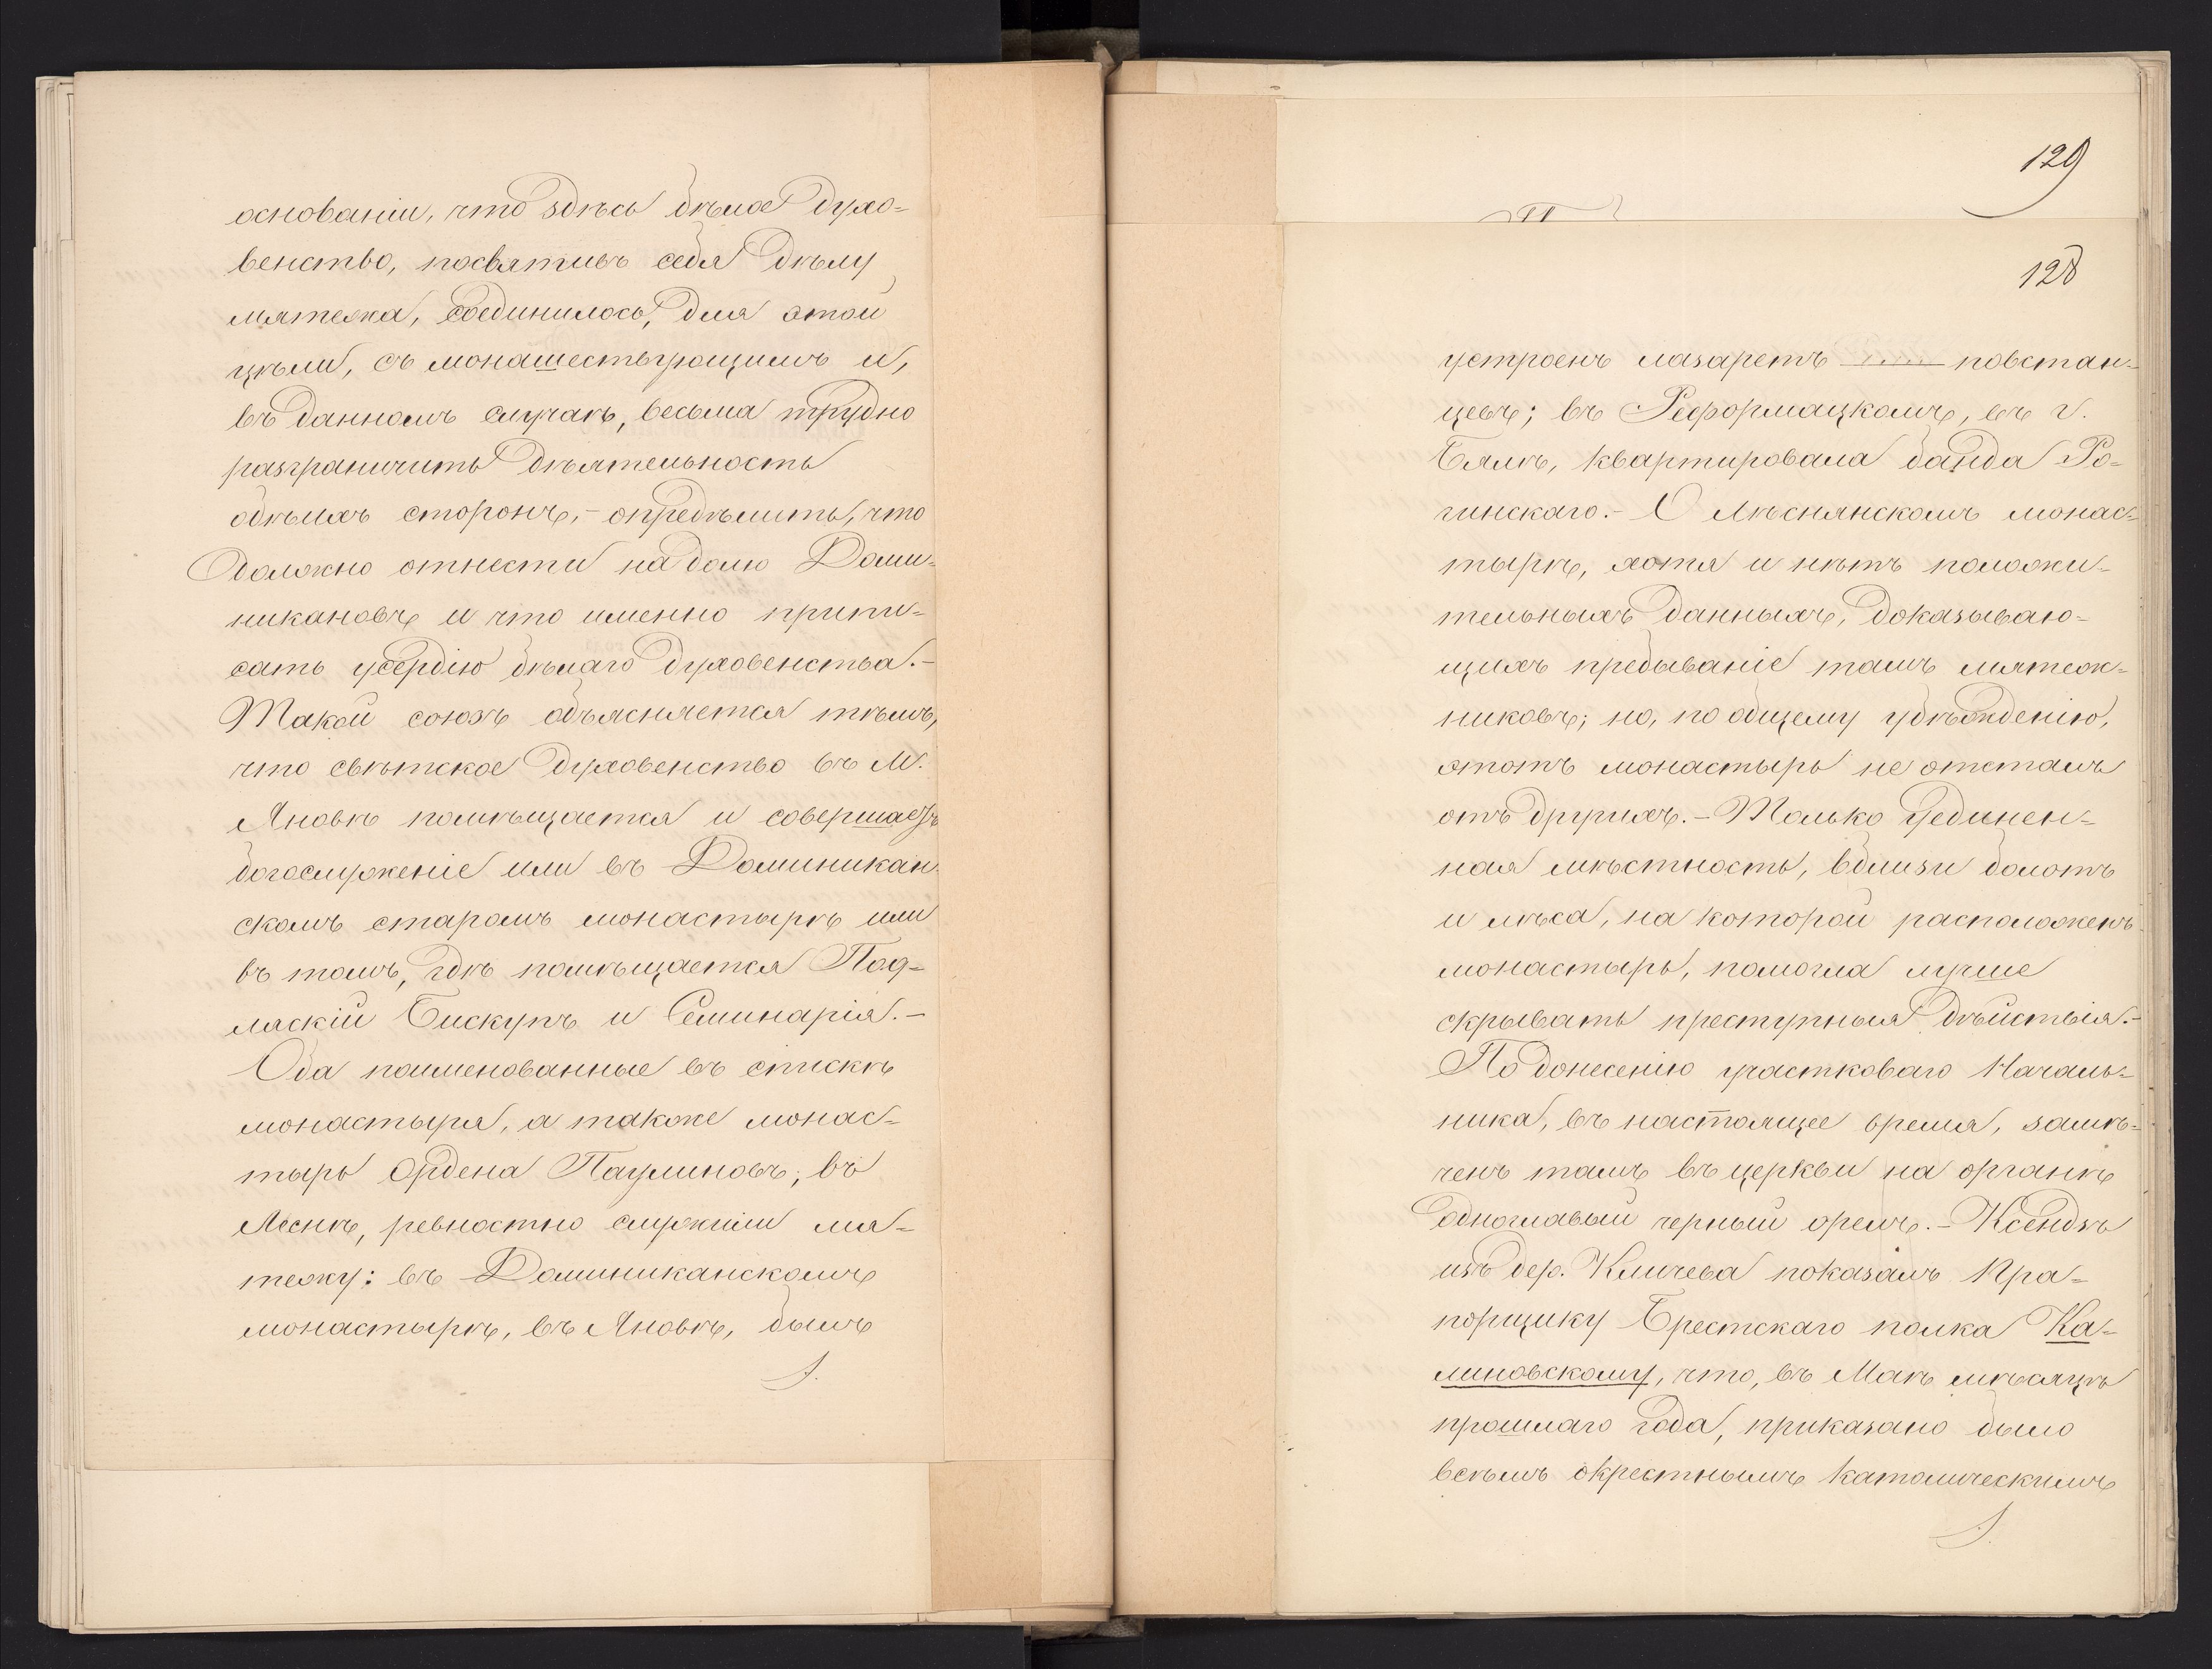 основаніи, что здѣсь бѣлое духо-
венство, посвятивъ себя дѣлу
мятежа, соединилось, для этой
цѣли, съ монашествующимъ и,
въ данномъ случаѣ, весьма трудно
разграничить дѣятельность
обѣихъ сторонъ, - опредѣлить, что
должно отнести на долю Доми-
никановъ и что именно припи-
сать усердію бѣлаго духовенства. -
Такой союзъ объясняется тѣмъ,
что свѣтское духовенство въ М.
Яновѣ помѣщается и совершаетъ
богослуженіе или въ Доминикан-
скомъ старомъ монастырѣ или
въ томъ, гдѣ помѣщается Под-
ляскій Бискупъ и Семинарія. -
Оба поименованные въ спискѣ
монастыря, а также монас-
тырь Ордена Паулиновъ, въ
Лѣснѣ, ревностно служили мя-
тежу: въ Доминиканскомъ
монастырѣ, въ Яновѣ, былъ
129
128
устроенъ лазаретъ повстан-
цевъ; въ Реформацкомъ, въ г.
Бялѣ, квартировала банда Ро-
гинскаго. - О Лѣснянскомъ монас-
тырѣ, хотя и нѣтъ положи-
тельныхъ данныхъ, доказываю-
щихъ пребываніе тамъ мятеж-
никовъ; но, по общему убѣжденію,
этотъ монастырь не отсталъ
отъ другихъ. - Только уединен-
ная мѣстность, вблизи болотъ
и лѣса, на которой расположенъ
монастырь, помогла лучше
скрывать преступныя дѣйствія. -
По донесенію участковаго Началь-
ника, въ настоящее время, замѣ-
ченъ тамъ въ церкви на органѣ
одноглавый черный орелъ. - Ксендзъ
изъ дер. Кличева показалъ Пра-
порщику Брестскаго полка Ка-
линовскому, что, въ Маѣ мѣсяцѣ
прошлаго года, приказано было
всѣмъ окрестнымъ католическимъ